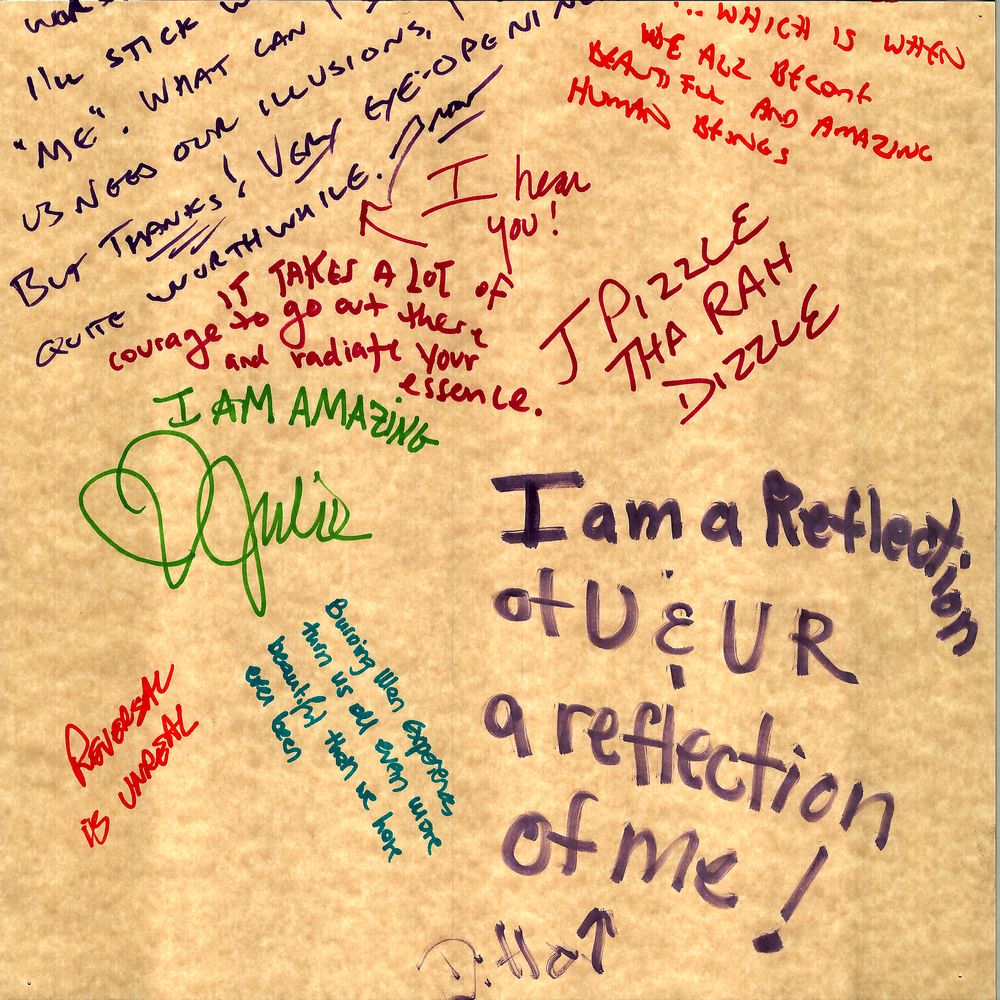 I'LL STICK
"ME". WHAT CAN
US NEED OUR ILLUSIONS,
BUT THANKS! VERY EYE-OPENING
QUITE WORTHWHILE.
... WHICH IS WHEN
WE ALL BECOME
BEAUTIFUL AND AMAZING
HUMAN BEINGS
I hear
you!
IT TAKES A LOT OF
courage to go out there
and radiate your
essence.
J PIZZLE
THA RAH
DIZZLE
I AM AMAZING
Julie
I am a Reflection
of U & U R
a reflection
of me!
Ditto ↑
REVERSAL
IS UNREAL
Burning Man Experiences
turn us all even more
beautiful than we have
ever been